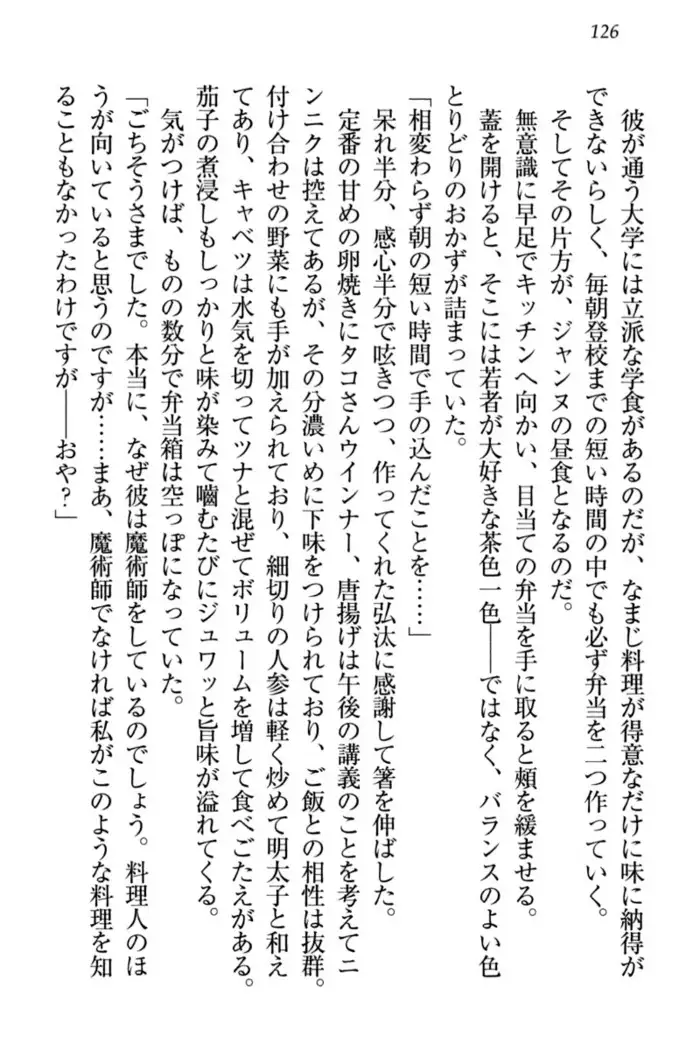 126
彼が通う大学には立派な学食があるのだが、なまじ料理が得意なだけに味に納得が
できないらしく、毎朝登校までの短い時間の中でも必ず弁当を二つ作っていく。
そしてその片方が、ジャンヌの昼食となるのだ。
無意識に早足でキッチンへ向かい、目当ての弁当を手に取ると頬を緩ませる。
蓋を開けると、そこには若者が大好きな茶色一色――ではなく、バランスのよい色
とりどりのおかずが詰まっていた。
「相変わらず朝の短い時間で手の込んだことを……」
呆れ半分、感心半分で呟きつつ、作ってくれた弘汰に感謝して箸を伸ばした。
定番の甘めの卵焼きにタコさんウインナー、唐揚げは午後の講義のことを考えてニ
ンニクは控えてあるが、その分濃いめに下味をつけられており、ご飯との相性は抜群。
付け合わせの野菜にも手が加えられており、細切りの人参は軽く炒めて明太子と和え
てあり、キャベツは水気を切ってツナと混ぜてボリュームを増して食べごたえがある。
茄子の煮浸しもしっかりと味が染みて噛むたびにジュワッと旨味が溢れてくる。
気がつけば、ものの数分で弁当箱は空っぽになっていた。
「ごちそうさまでした。本当に、なぜ彼は魔術師をしているのでしょう。料理人のほ
うが向いていると思うのですが……まあ、魔術師でなければ私がこのような料理を知
ることもなかったわけですが――おや？」